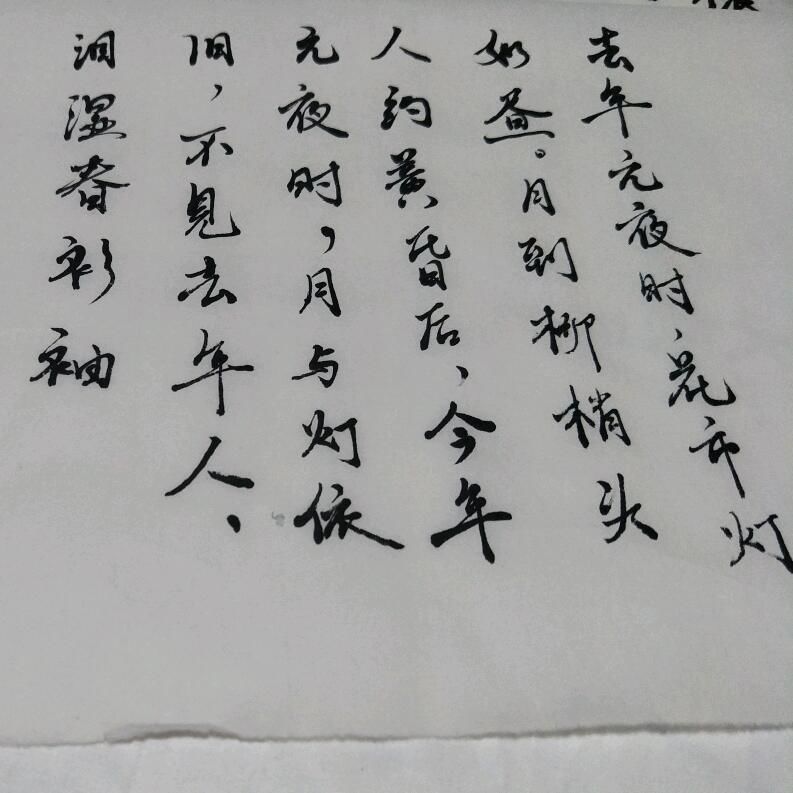 去年元夜时，花市灯
如昼。月到柳梢头
人约黄昏后，今年
元夜时，月与灯依
旧，不见去年人，
泪湿春衫袖